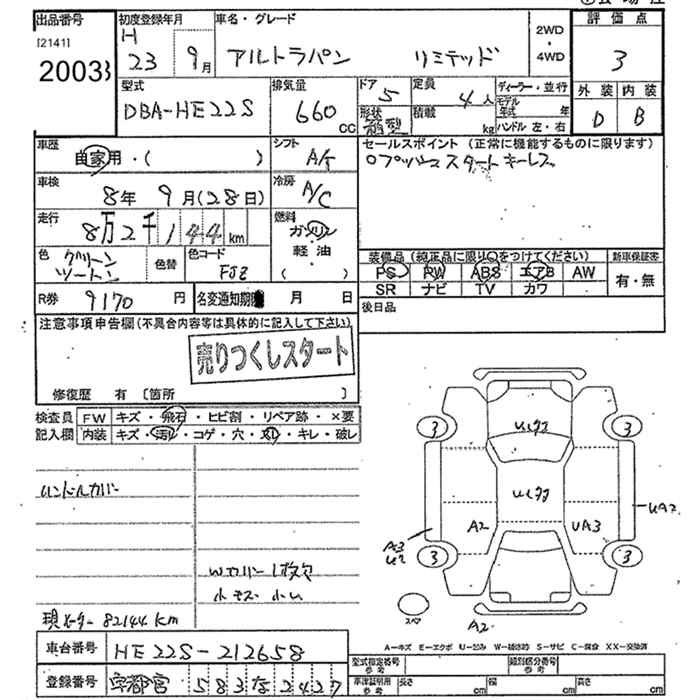 出品番号 初度登録年月 車名・グレード 2WD・4WD 評価点
[2141] H
20033 23 9月 アルトラパン リミテッド 3
型式 排気量 ドア 定員 ディーラー・並行 外装 内装
DBA-HE22S 660 CC 5 4人 モデル年式 年 D B
形状 箱型 積載 kg ハンドル 左・右
車歴 シフト セールスポイント (正常に機能するものに限ります)
自家用・( ) A/T
車検 冷房
8年 9月(28日) A/C
走行 燃料
8万2千144km ガソリン
軽油
( )
色 色替 色コード 装備品 (純正品に限り○をつけてください) 新車保証書
グリーン ツートン FJZ PS PW ABS エアB AW 有・無
SR ナビ TV カワ
R券 9170円 名変通知期限 月 日 後日品
注意事項申告欄(不具合内容等は具体的に記入して下さい)
売りつくしスタート
修復歴 有 〔箇所 〕
検査員 FW キズ・飛石・ヒビ割・リペア跡・×要
記入欄 内装 キズ・汚れ・コゲ・穴・スレ・キレ・破レ
3 3
A2 UA3 UA2
A3
3 3
スペア
A2
現メーター 82144km
A=キズ E=エクボ U=凹み W=補修跡 S=サビ C=腐食 XX=交換済
車台番号 HE22S-212658 型式指定番号 参考 類別区分番号 参考
登録番号 宇都宮 583 な 2427 車庫証明用 参考 長さ cm 幅 cm 高さ cm